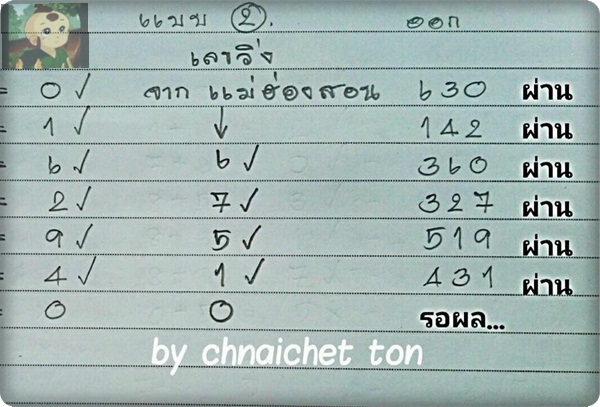 แบบ ②. ออก
เลขวิ่ง
= 0 ✓ จาก แม่ฮ่องสอน 630 ผ่าน
= 1 ✓ ↓ 142 ผ่าน
= 6 ✓ 6 ✓ 360 ผ่าน
= 2 ✓ 7 ✓ 327 ผ่าน
= 9 ✓ 5 ✓ 519 ผ่าน
= 4 ✓ 1 ✓ 431 ผ่าน
= 0 0 รอผล...
by chnaichet ton